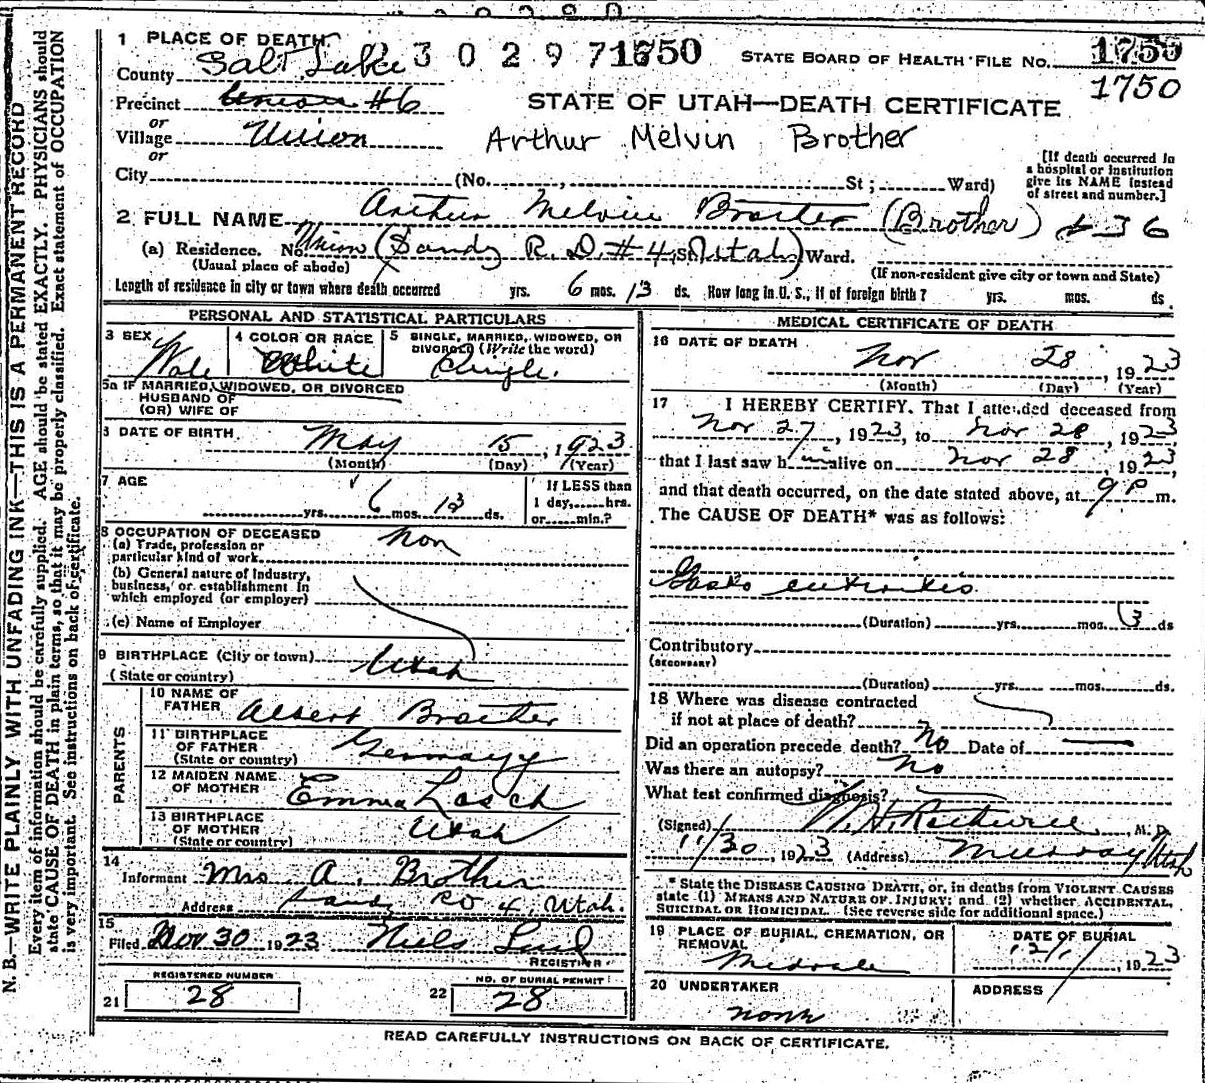 1 PLACE OF DEATH 3 0 2 9 7 1750 STATE BOARD OF HEALTH FILE NO. 1750
County Salt Lake 1750
Precinct Union #6 STATE OF UTAH—DEATH CERTIFICATE
or
Village Union Arthur Melvin Brother
or
City (No. , St; Ward)
[If death occurred in a hospital or institution give its NAME instead of street and number.]
2 FULL NAME Arthur Melvin Braeter (Brother) 36
(a) Residence. No. Union (Sandy R. D. #4, St. Utah) Ward.
(Usual place of abode) (If non-resident give city or town and State)
Length of residence in city or town where death occurred yrs. 6 mos. 13 ds. How long in U. S., if of foreign birth? yrs. mos. ds.
PERSONAL AND STATISTICAL PARTICULARS
3 SEX Male
4 COLOR OR RACE White
5 SINGLE, MARRIED, WIDOWED, OR DIVORCED (Write the word) Single.
5a IF MARRIED, WIDOWED, OR DIVORCED
HUSBAND OF
(OR) WIFE OF
6 DATE OF BIRTH May 15, 1923
(Month) (Day) (Year)
7 AGE yrs. 6 mos. 13 ds.
If LESS than
1 day, hrs.
or min.?
8 OCCUPATION OF DECEASED
(a) Trade, profession or
particular kind of work non
(b) General nature of Industry,
business, or establishment in
which employed (or employer)
(c) Name of Employer
9 BIRTHPLACE (City or town)
(State or country) Utah
PARENTS
10 NAME OF
FATHER Albert Braeter
11 BIRTHPLACE
OF FATHER
(State or country) Germany
12 MAIDEN NAME
OF MOTHER Emma Lasch
13 BIRTHPLACE
OF MOTHER
(State or country) Utah
14
Informant Mrs A. Brother
Address Sandy RD 4 Utah.
15
Filed Nov. 30 1923 Niels Lind
REGISTRAR
REGISTERED NUMBER
21 28
NO. OF BURIAL PERMIT
22 28
MEDICAL CERTIFICATE OF DEATH
16 DATE OF DEATH
Nov 28, 1923
(Month) (Day) (Year)
17 I HEREBY CERTIFY, That I attended deceased from
Nov 27, 1923, to Nov 28, 1923
that I last saw him alive on Nov 28, 1923,
and that death occurred, on the date stated above, at 9 P m.
The CAUSE OF DEATH* was as follows:
Gastro enteritis
(Duration) yrs. mos. 3 ds
Contributory
(SECONDARY)
(Duration) yrs. mos. ds.
18 Where was disease contracted
if not at place of death?
Did an operation precede death? No Date of
Was there an autopsy? No
What test confirmed diagnosis?
(Signed) M. D.
11/30, 1923 (Address) Murray Utah
* State the DISEASE CAUSING DEATH, or, in deaths from VIOLENT CAUSES
state (1) MEANS AND NATURE OF INJURY; and (2) whether ACCIDENTAL,
SUICIDAL OR HOMICIDAL. (See reverse side for additional space.)
19 PLACE OF BURIAL, CREMATION, OR
REMOVAL
Midvale
DATE OF BURIAL
12/1/, 1923
20 UNDERTAKER
none
ADDRESS
READ CAREFULLY INSTRUCTIONS ON BACK OF CERTIFICATE.
N. B.—WRITE PLAINLY WITH UNFADING INK—THIS IS A PERMANENT RECORD
Every item of information should be carefully supplied. AGE should be stated EXACTLY. PHYSICIANS should
state CAUSE OF DEATH in plain terms, so that it may be properly classified. Exact statement of OCCUPATION
is very important. See instructions on back of certificate.